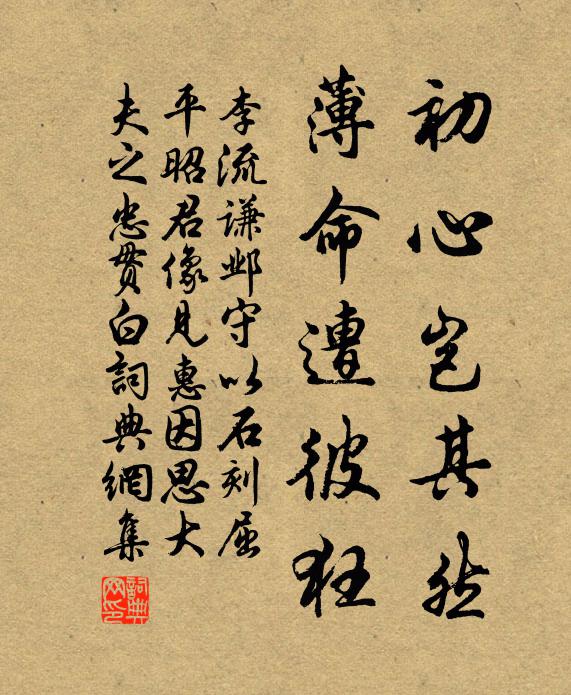 初心岂其然
薄命遭彼狂
李流谦邺守以石刻屈
平昭君像見惠因思大
夫之忠贯白詞典網集
詞典网印